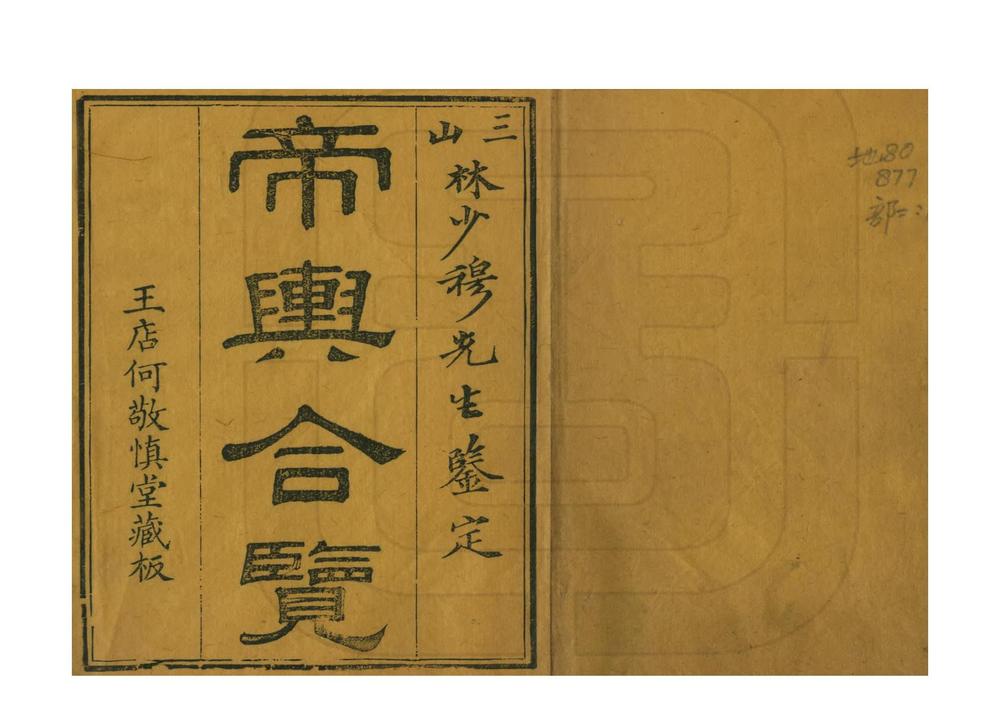 三山
林少穆先生鑒定
帝輿合覽
王店何敬慎堂藏板
地80
877
部二: